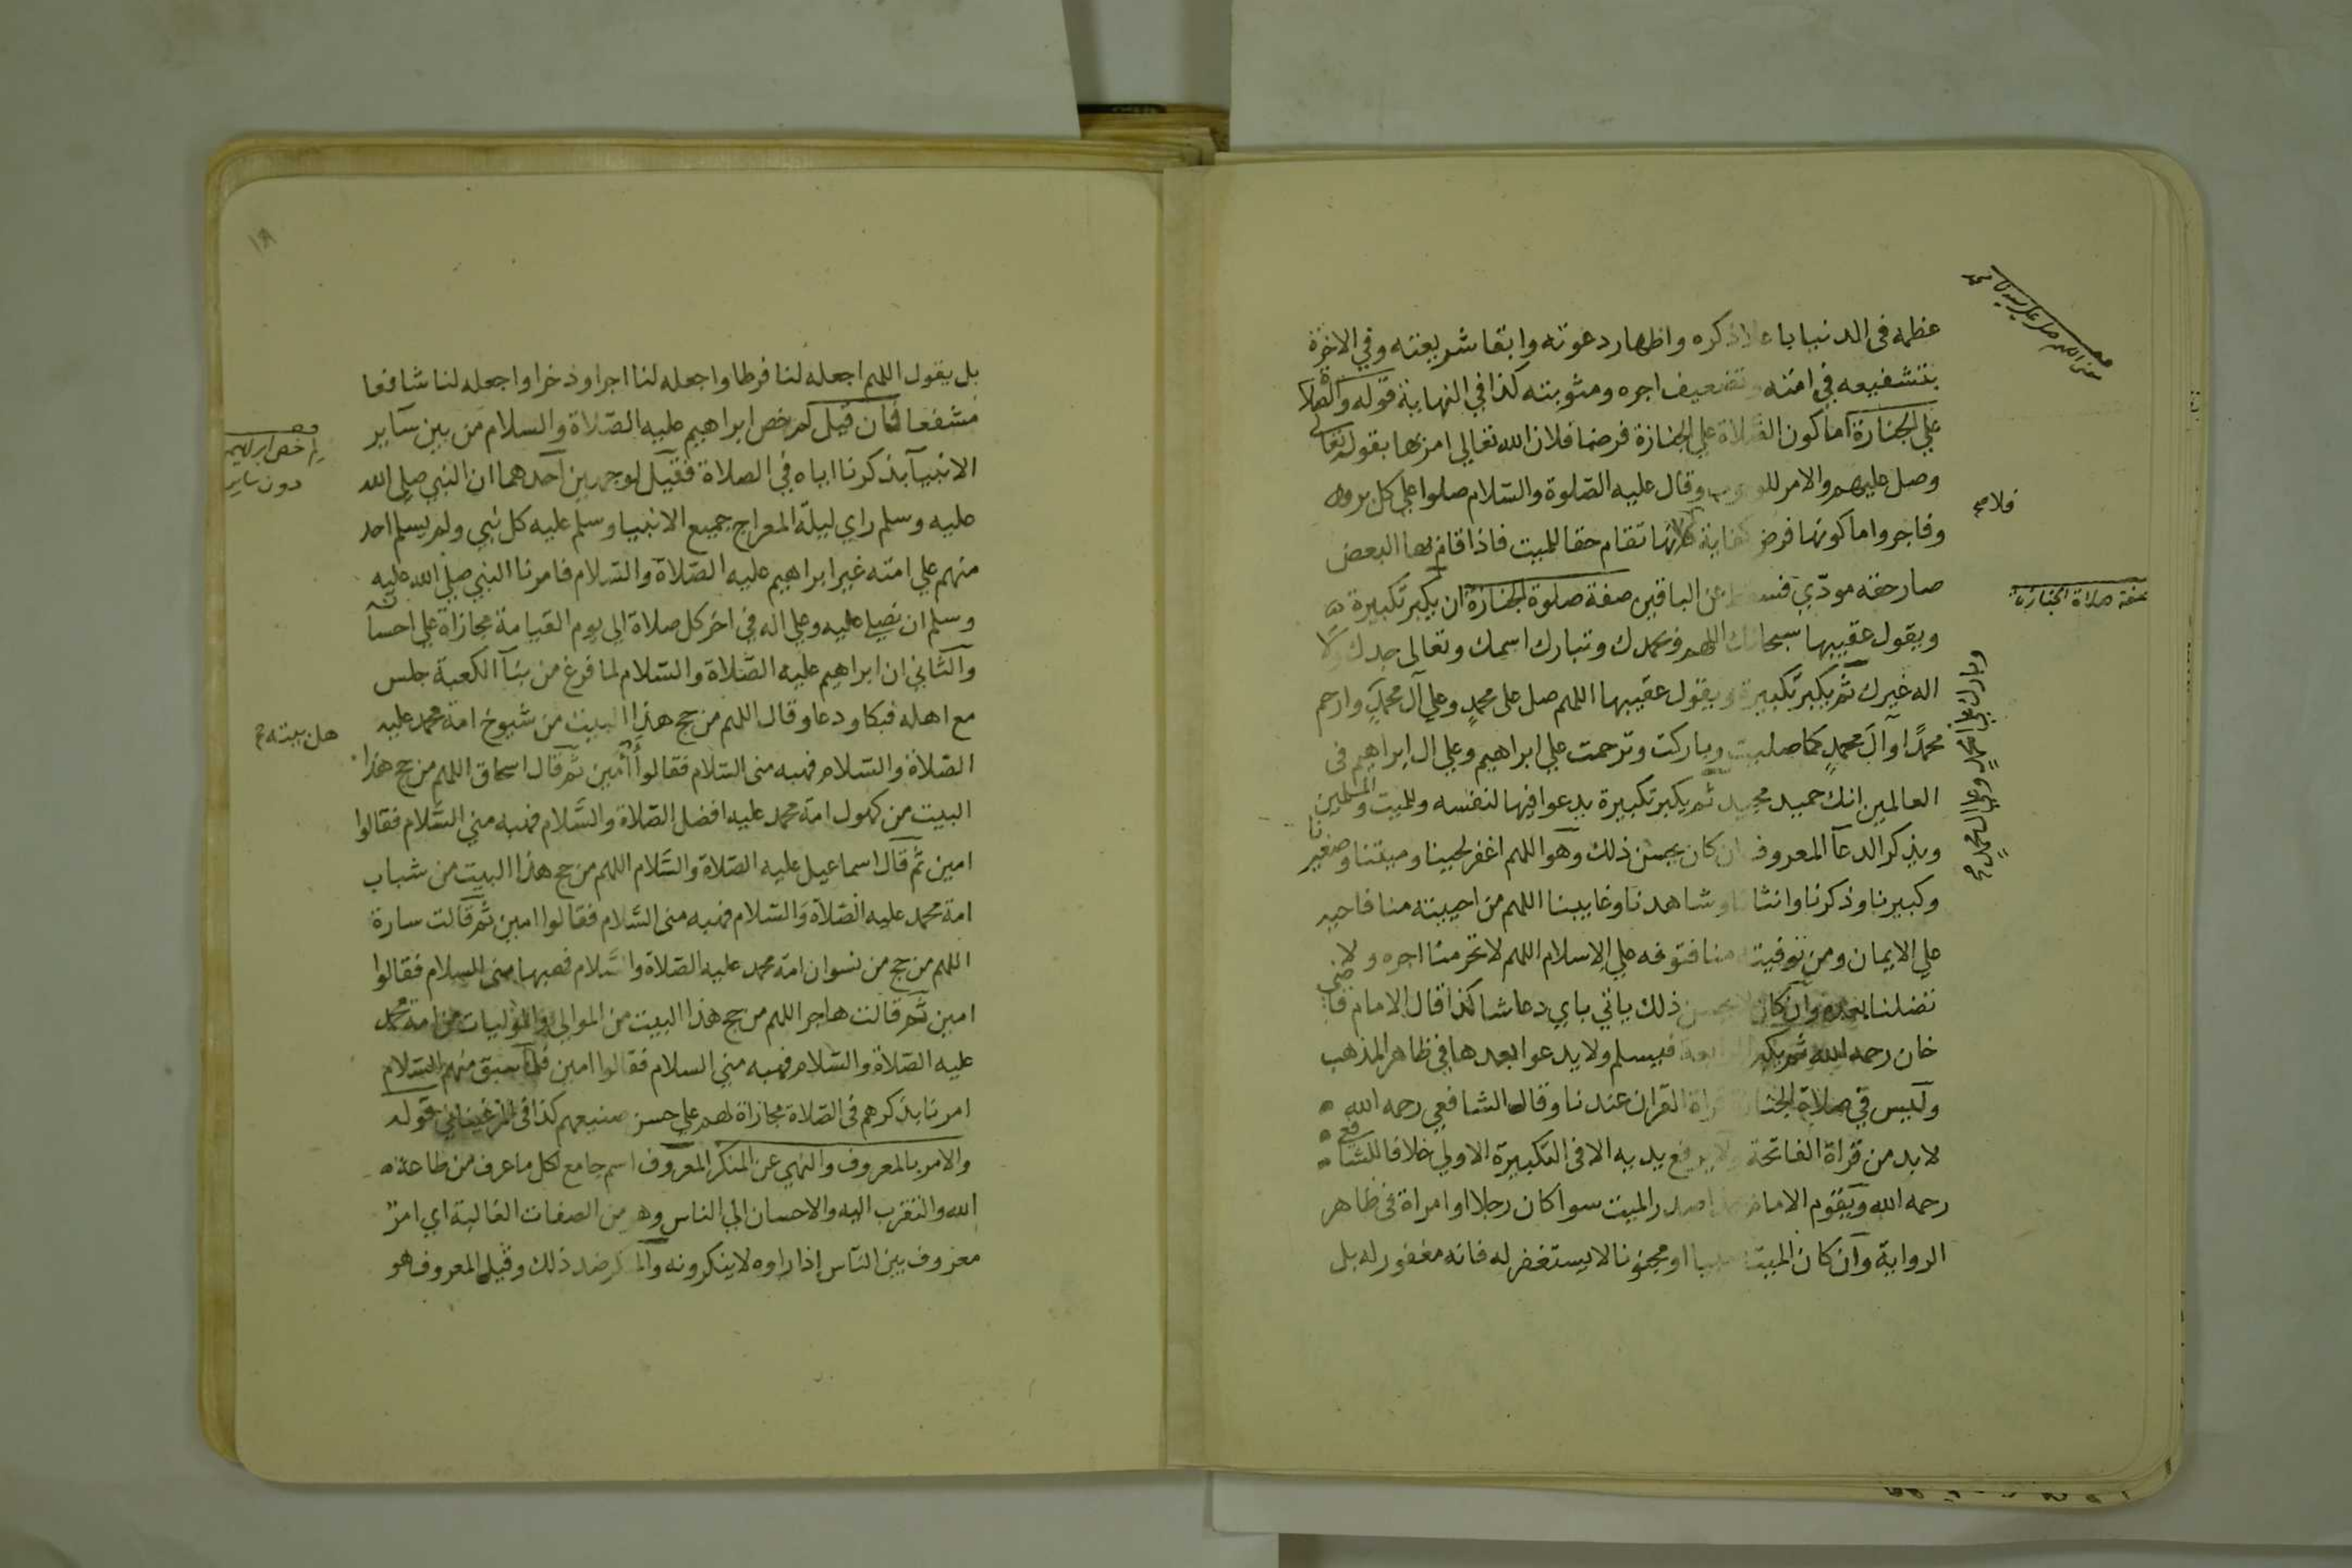 عظمه فى الدنيا باعلا ذكره واظهار دعوته وابقا شريعته وفي الاخرة
بتشفيعه في امته وتضعيف اجره ومثوبته كذا في النهاية قوله والصلاة
علي الجنازة اما كون الصلاة علي الجنازة فرضا فلان الله تعالي امر بها بقوله تعالى
وصل عليهم والامر للوجوب وقال عليه الصلوة والسلام صلوا علي كل بر
وفاجر واما كونها فرض كفاية فلانها تقام حقا للميت فاذا اقام بها البعض
صار حقه مودي فسقط عن الباقين صفة صلوة الجنازة ان يكبر تكبيرة
ويقول عقيبها سبحانك اللهم وبحمدك وتبارك اسمك وتعالى جدك ولا
اله غيرك ثم يكبر تكبيرة ويقول عقيبها اللهم صل على محمد وعلي آل محمد وارحم
محمدا وآل محمد كما صليت وباركت وترحمت علي ابراهيم وعلي ال ابراهيم فى
العالمين انك حميد مجيد ثم يكبر تكبيرة يدعوا فيها لنفسه وللميت والمسلمين
ويذكر الدعآ المعروف ان كان يحسن ذلك وهو اللهم اغفر لحينا وميتنا وصغيرنا
وكبيرنا وذكرنا وانثانا وشاهدنا وغايبنا اللهم من احييته منا فاحيه
علي الايمان ومن توفيته منا فتوفه علي الاسلام اللهم لا تحرمنا اجره ولا
تضلنا بعده وان كان لا يحسن ذلك ياتي باي دعا شا كذا قال الامام قاضي
خان رحمه الله ثم يكبر الرابعة فيسلم ولا يدعوا بعدها في ظاهر المذهب
وليس في صلاة الجنازة قراة القران عندنا وقال الشافعي رحمه الله
لا بد من قراة الفاتحة ولا يرفع يديه الا فى التكبيرة الاولي خلافا للشافع
رحمه الله ويقوم الامام بحذا صدر الميت سوا كان رجلا او امراة في ظاهر
الرواية وان كان الميت صبيا او مجنونا لا يستغفر له فانه مغفور له بل
معنى اللهم صل على سيدنا محمد
فلاصح
صفة صلاة الجنازة
وبارك علي محمد وعلي ال محمد صح
بل يقول اللهم اجعله لنا فرطا واجعله لنا اجرا وذخرا واجعله لنا شافعا
مشفعا فان قيل لم خص ابراهيم عليه الصلاة والسلام من بين سآير
الانبيآ بذكرنا اياه في الصلاة فقيل لوجهين احدهما ان النبي صلي الله
عليه وسلم راي ليلة المعراج جميع الانبيا وسلم عليه كل نبي ولم يسلم احد
منهم علي امته غير ابراهيم عليه الصلاة والسلام فامرنا النبي صلي الله عليه
وسلم ان نصلي عليه وعلي اله في اخر كل صلاة الي يوم القيامة مجازاة علي احسانه
والثاني ان ابراهيم عليه الصلاة والسلام لما فرغ من بنآ الكعبة جلس
مع اهله فبكا ودعا وقال اللهم من حج هذا البيت من شيوخ امة محمد عليه
الصلاة والسلام فهبه منى السلام فقالوا أمين ثم قال اسحاق اللهم من حج هذا
البيت من كهول امة محمد عليه افضل الصلاة والسلام فهبه مني السلام فقالوا
امين ثم قال اسماعيل عليه الصلاة والسلام اللهم من حج هذا البيت من شباب
امة محمد عليه الصلاة والسلام فهبه منى السلام فقالوا امين ثم قالت سارة
اللهم من حج من نسوان امة محمد عليه الصلاة والسلام فهبها منى السلام فقالوا
امين ثم قالت هاجر اللهم من حج هذا البيت من الموالي والموليات من امة محمد
عليه الصلاة والسلام فهبه مني السلام فقالوا امين فلما سبق منهم السلام
امرنا بذكرهم فى الصلاة مجازاة لهم علي حسن صنيعهم كذا فى المرغيناني قوله
والامر بالمعروف والنهي عن المنكر المعروف اسم جامع لكل ما عرف من طاعة
الله والتقرب اليه والاحسان الي الناس وهو من الصفات الغالبة اي امر
معروف بين الناس إذا راوه لا ينكرونه والمنكر ضد ذلك وقيل المعروف هو
لم خص ابراهيم
دون ساير
هل بيته
١٨